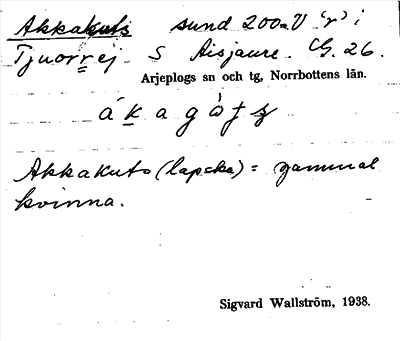 Akkakuts sund 200m V "r" i
Tjuorrej S Aisjaure. G. 26.
Arjeplogs sn och tg, Norrbottens län.
Akkakuts (lapska) = gammal
kvinna.
Sigvard Wallström, 1938.